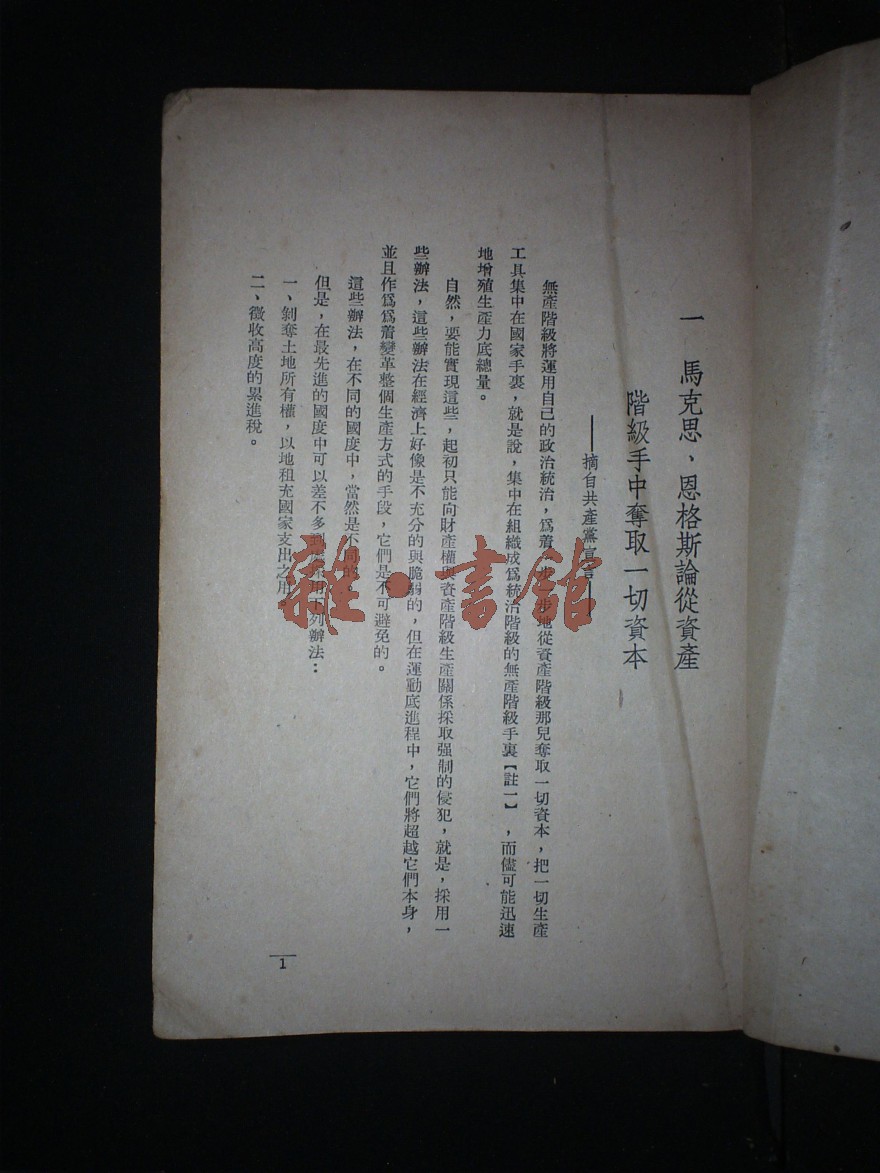 一 馬克思、恩格斯論從資產
階級手中奪取一切資本
——摘自共產黨宣言——
無產階級將運用自己的政治統治,爲着一步一步地從資產階級那兒奪取一切資本,把一切生產
工具集中在國家手裏,就是說,集中在組織成爲統治階級的無產階級手裏【註一】,而儘可能迅速
地增殖生產力底總量。
自然,要能實現這些,起初只能向財產權與資產階級生產關係採取强制的侵犯,就是,採用一
些辦法,這些辦法在經濟上好像是不充分的與脆弱的,但在運動底進程中,它們將超越它們本身,
並且作爲爲着變革整個生產方式的手段,它們是不可避免的。
這些辦法,在不同的國度中,當然是不同的。
但是,在最先進的國度中可以差不多到處採用下列辦法:
一、剝奪土地所有權,以地租充國家支出之用
二、徵收高度的累進稅。
1
雜·書館